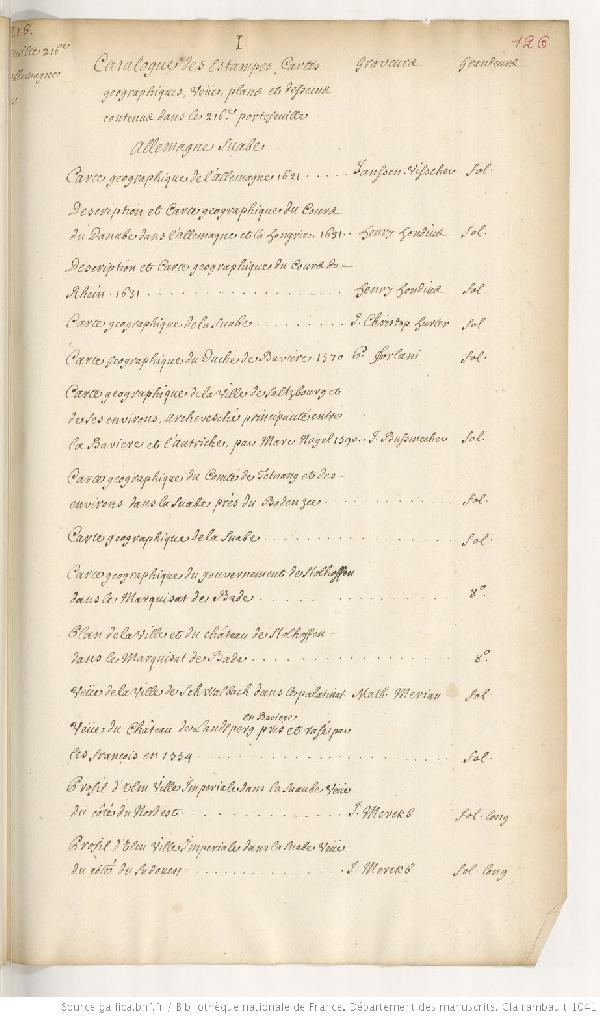 216.
I
126
allemagne
Catalogue des Estampes, Cartes Graveurs Grandeurs
geographiques, Veües, plans et desseins
contenus dans le 216.e portefeuille
Allemagne Suabe
Carte geographique de l'allemagne 1621 ..... Janssen Visscher fol.
Description et Carte geographique du Cours
du Danube dans l'allemagne et la hongrie. 1631.. henry hondius fol.
Description et Carte geographique du Cours du
Rhein. 1631 ........ henry hondius fol
Carte geographique de la Suabe ........ J. Christop hurter fol
Carte geographique du Duché de Baviere 1570 forlani fol.
Carte geographique de la Ville de Saltzbourg et
de ses environs, archevesché principauté entre
la Baviere et l'autriche, par Marc 1590.. J. Bussmecher fol.
Carte geographique du Comté de Tetnang et des
environs dans la Suabe prés du Bodenzee ........ fol.
Carte geographique de la Suabe ........ fol.
Carte geographique du gouvernement de Stolhoffen
dans le Marquisat de Bade ........ 8.o
Plan de la Ville et du château de Stolhoffen
dans le Marquisat de Bade ........ 8.o
Veüe de la Ville de Schwalbach dans le palatinat Math. Merian fol.
en Baviere
Veüe du Château de Landsperg pris et rasé par
les francois en ........ fol.
Profil d'Ulm Ville Imperiale dans la Suaube Veüe
du côté du Nordest ........ J. Merckb fol. long
Profil d'Ulm Ville Imperiale dans la Suabe Veüe
du côté du Sudouest ........ J Merckb fol. long
Source gallica.bnf.fr / Bibliothèque nationale de France. Département des manuscrits. Clairambault 1041